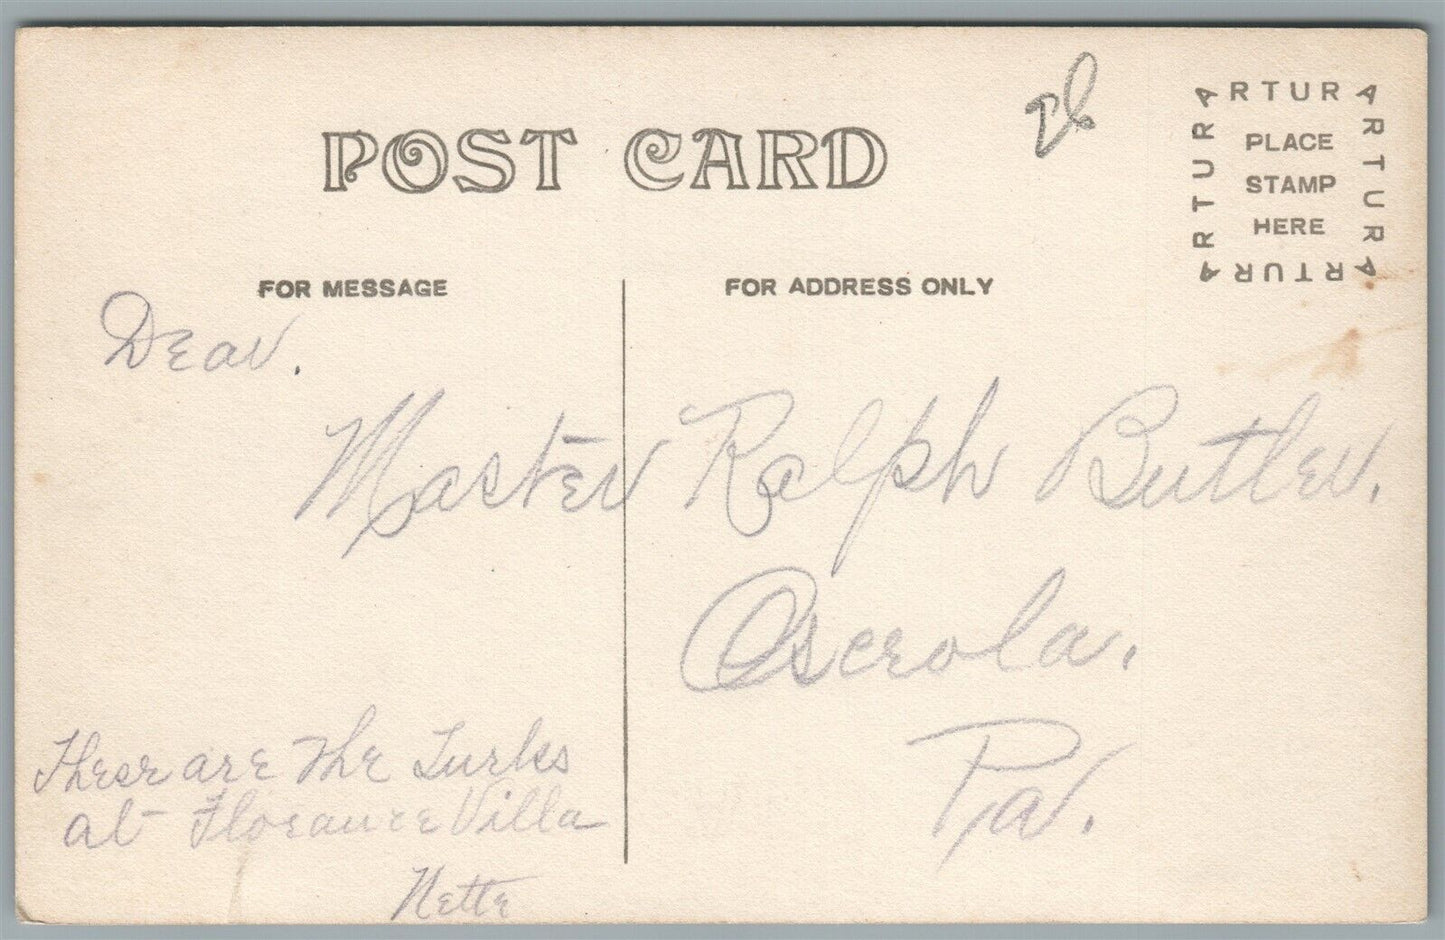 POST CARD
ARTURA
ARTURA
ARTURA
ARTURA
PLACE
STAMP
HERE
FOR MESSAGE
FOR ADDRESS ONLY
Dear.
Master Ralph Butler.
Osceola.
Pa.
These are the Turks
at Florance Villa
Nette